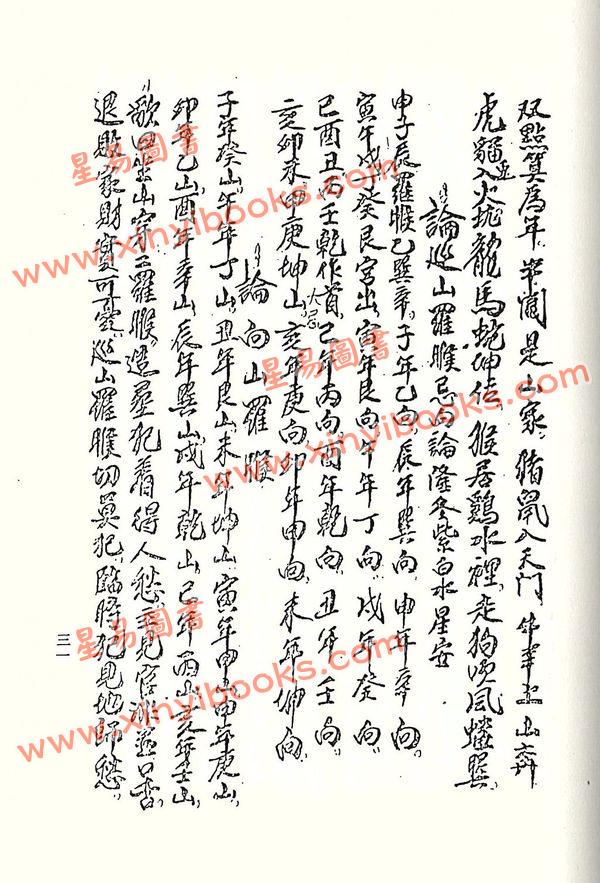 双點算為年、牢闲是山家、豬鼠入天門、牛羊上山奔
虎猫並入火坑、龍馬蛇坤佳、猴居鷄水裡、走狗須風蟠巽
論巡山羅睺忌向論隆冬紫白水星安
申子辰羅睺乙巽辛、子年乙向、辰年巽向、申年辛向
寅午戌年癸艮宮出、寅年艮向、午年丁向、戌年癸向
巳酉丑丙壬乾作首、巳年丙向、酉年乾向、丑年壬向
亥卯未甲庚坤山大忌、亥年庚向、卯年甲向、未年坤向
論向山羅睺
子年癸山、午年丁山、丑年艮山、未年坤山、寅年甲山、申年庚山、
卯年乙山、酉年辛山、辰年巽山、戌年乾山、巳年丙山、亥年壬山、
歌曰坐山穿山羅睺、造塟犯着得人愁、主見官非並口舌、
退敗家財實可憂、巡山羅睺切莫犯、臨時犯見地師愁
三一
星易圖書
www.xinyibooks.com
星易圖書
www.xinyibooks.com
星易圖書
www.xinyibooks.com